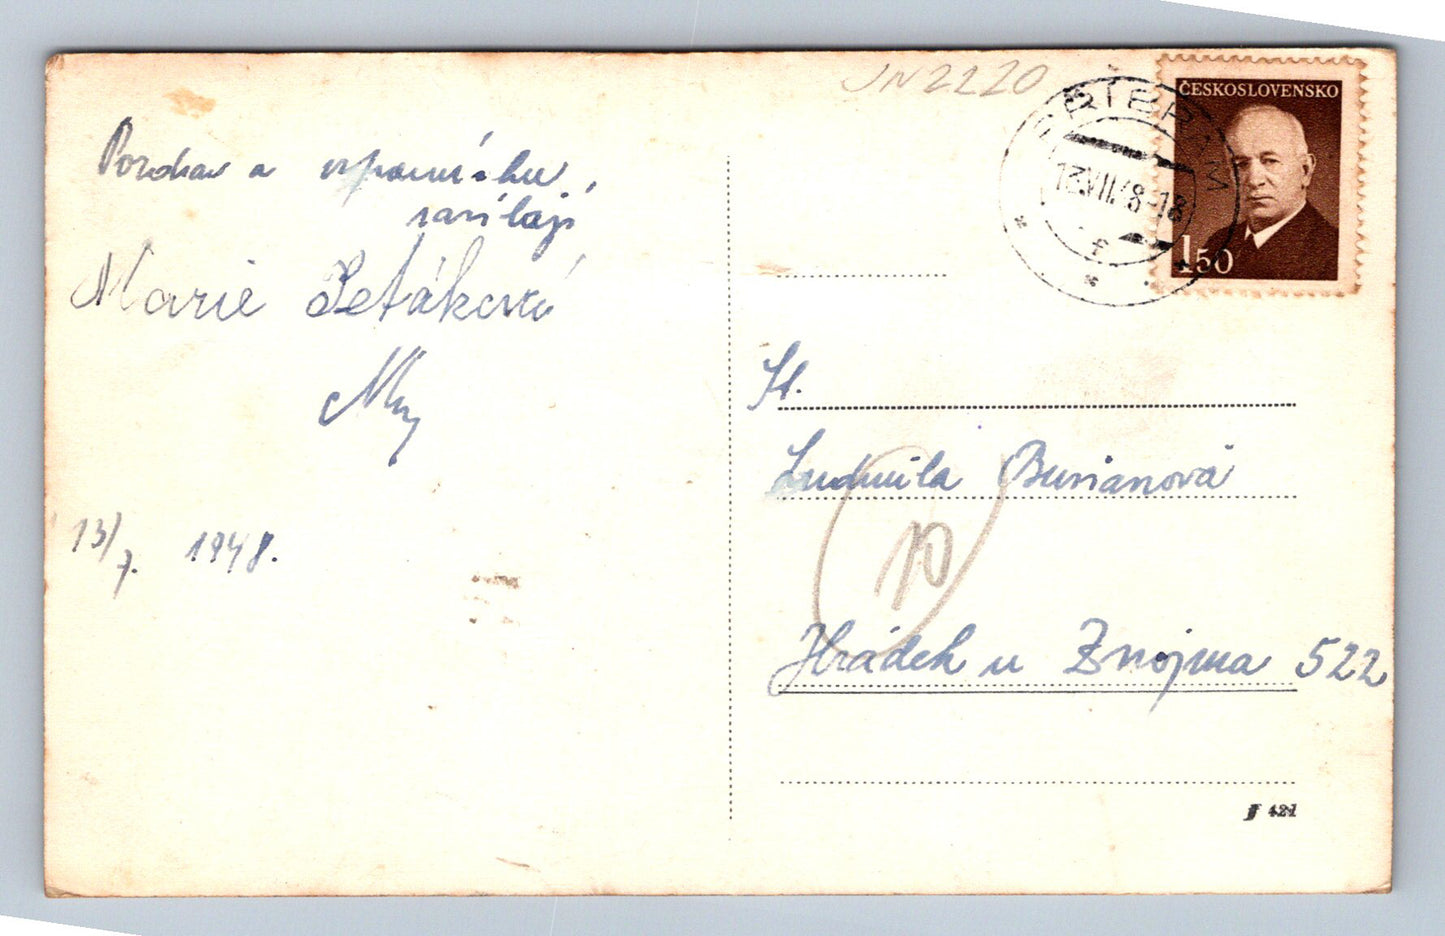 Pozdrav a vzpomínku,
zasílají
Marie Petáková
13/7. 1948.
JN2220
PŘÍBRAM
13.VII.48-18
ČESKOSLOVENSKO
1.50
Sl.
Ludmila Burianová
10
Hrádek u Znojma 522
J 421